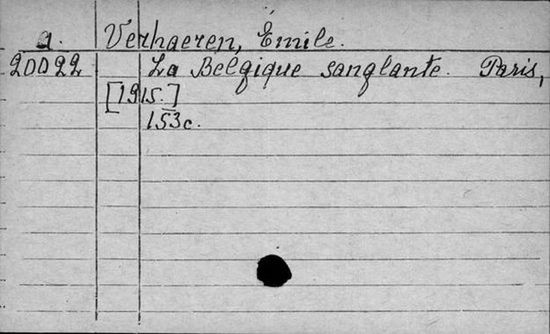 a. Verhaeren, Émile.
20022 La Belgique sanglante. Paris,
[1915.]
153c.